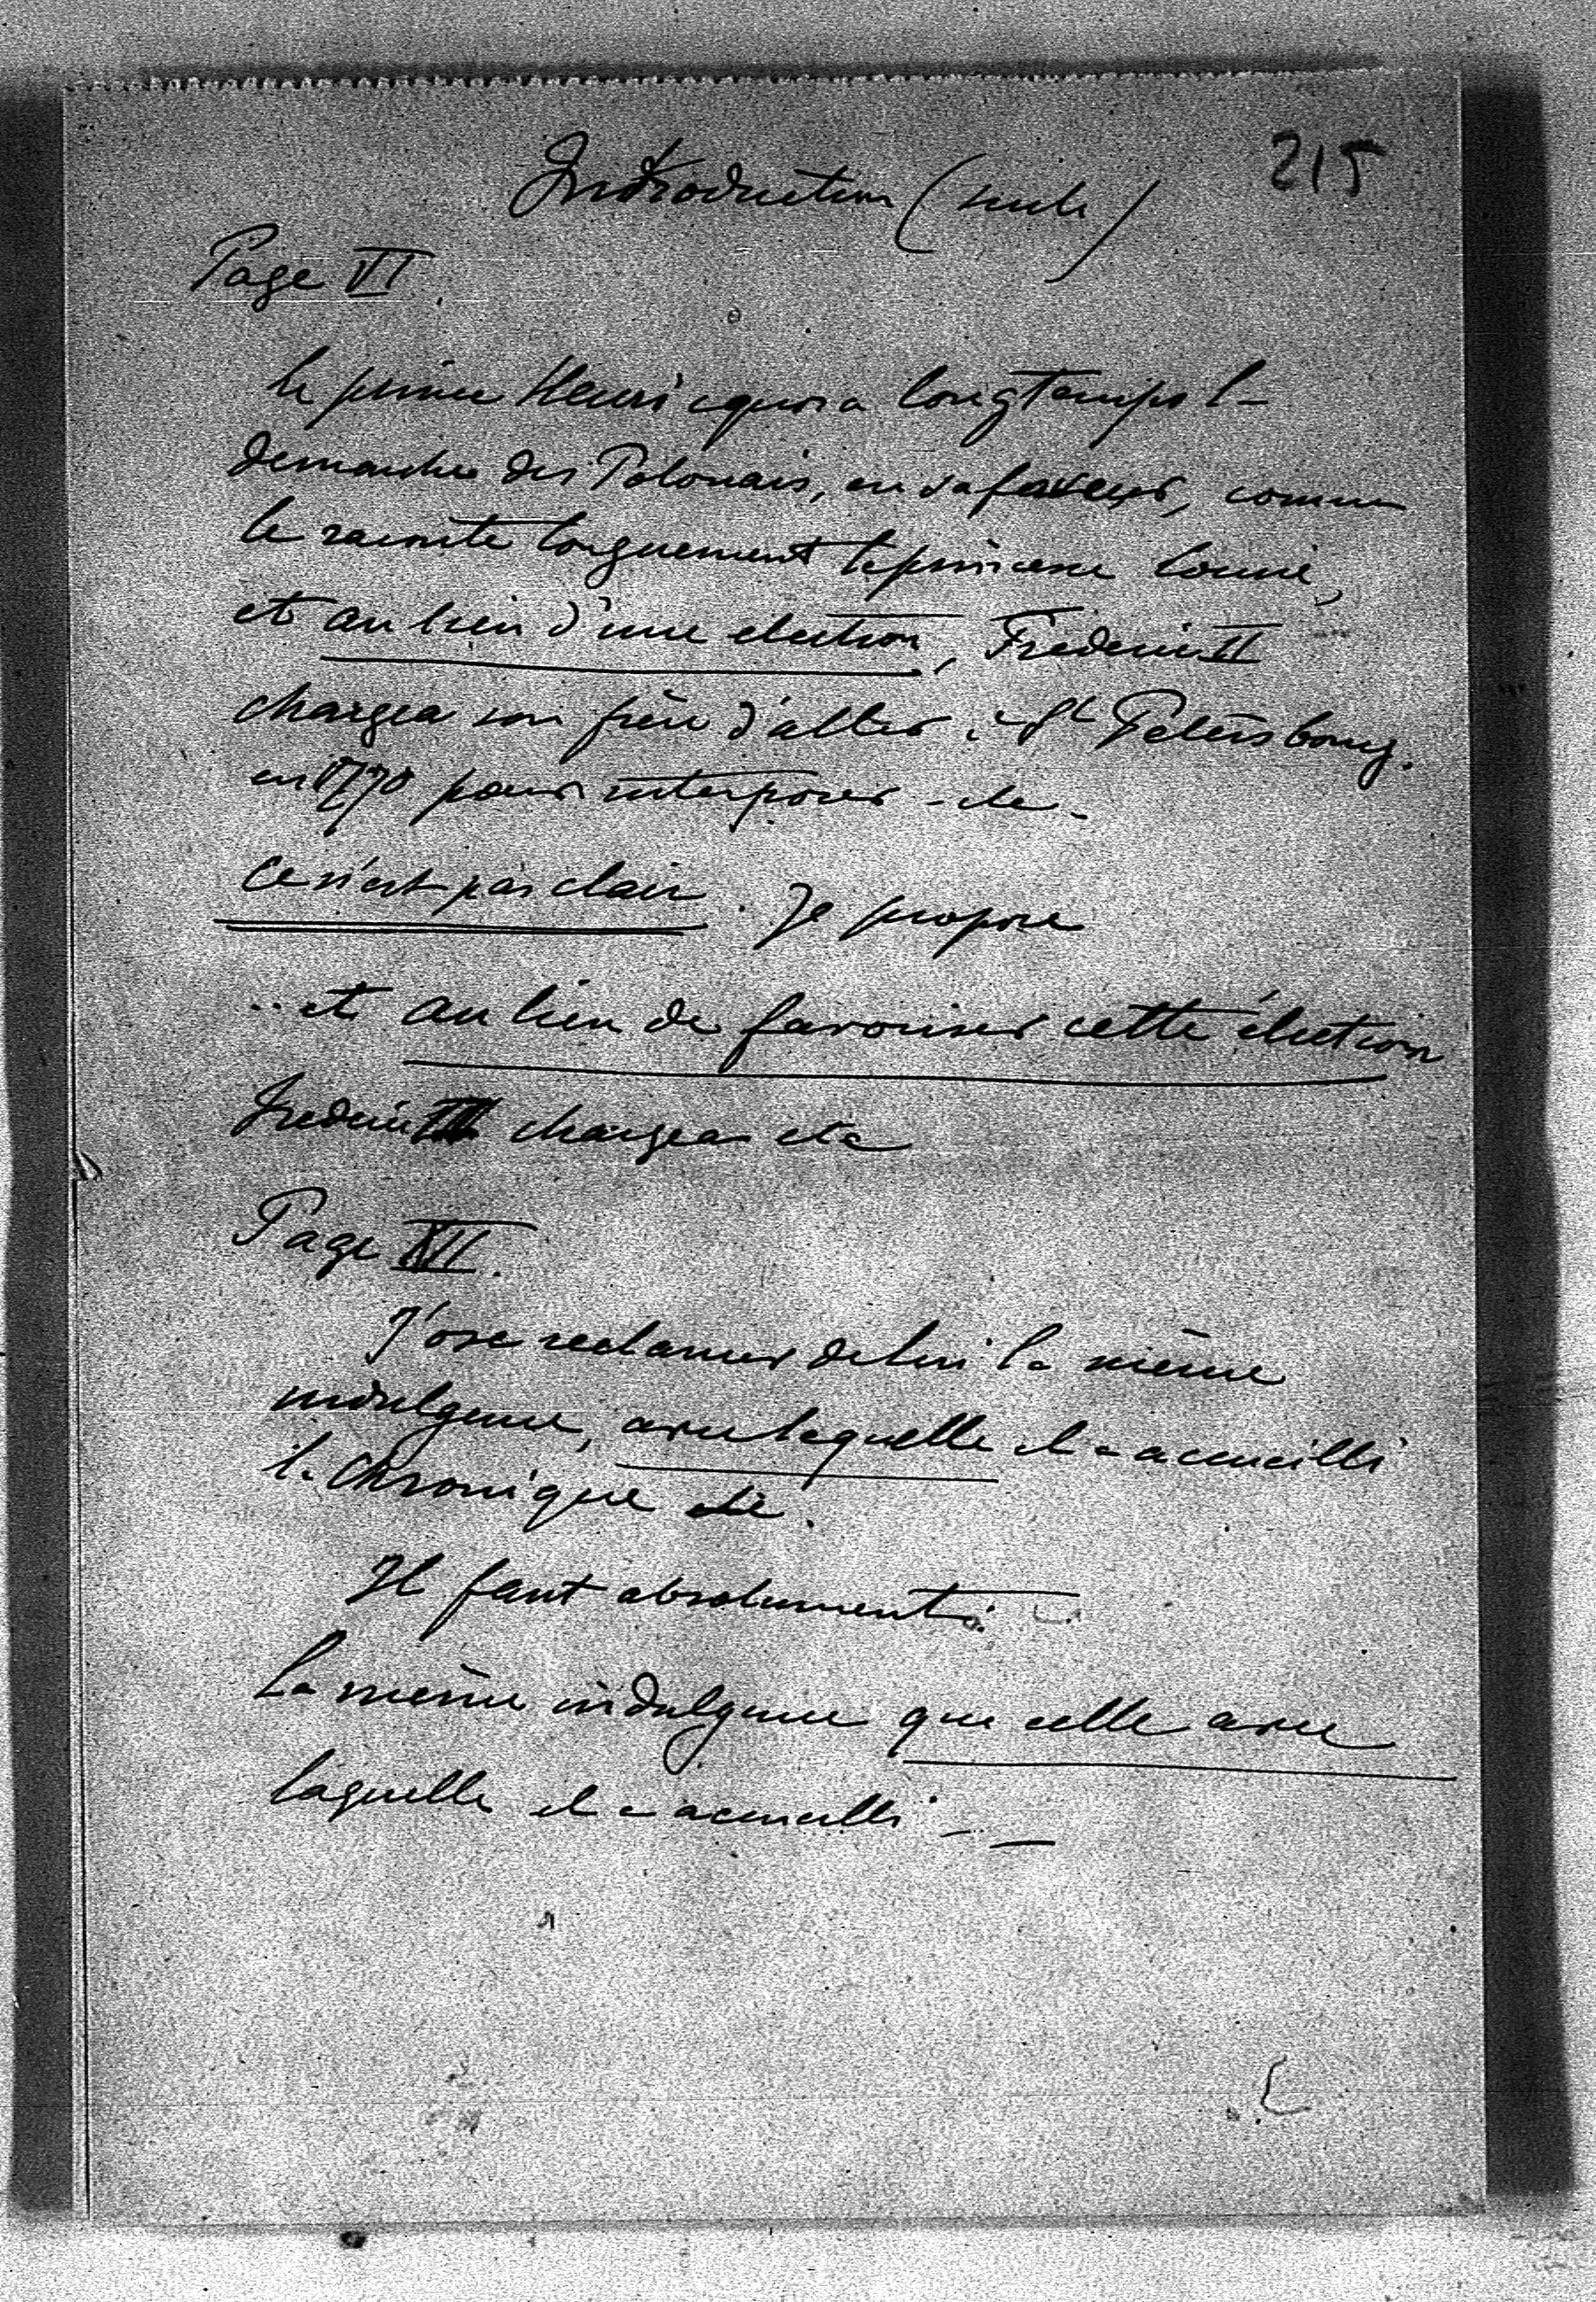 215
Introduction (suite)
Page VI.
Le prince Henri ignora longtemps la
demarche des Polonais, en sa faveur, comme
le raconte longuement la princesse Louise,
et au lieu d'une election, Frederic II
chargea son frère d'aller à St Petersbourg.
en 1770 pour interposer - etc -
Ce n'est pas clair. Je propose
.. et au lieu de favoriser cette élection
Frederic II chargea etc
Page
J'ose reclamer de lui la même
indulgence, avec laquelle il a accueilli
la Chronique etc.
Il faut absolument :
La même indulgence que celle avec
laquelle il a accueilli - —